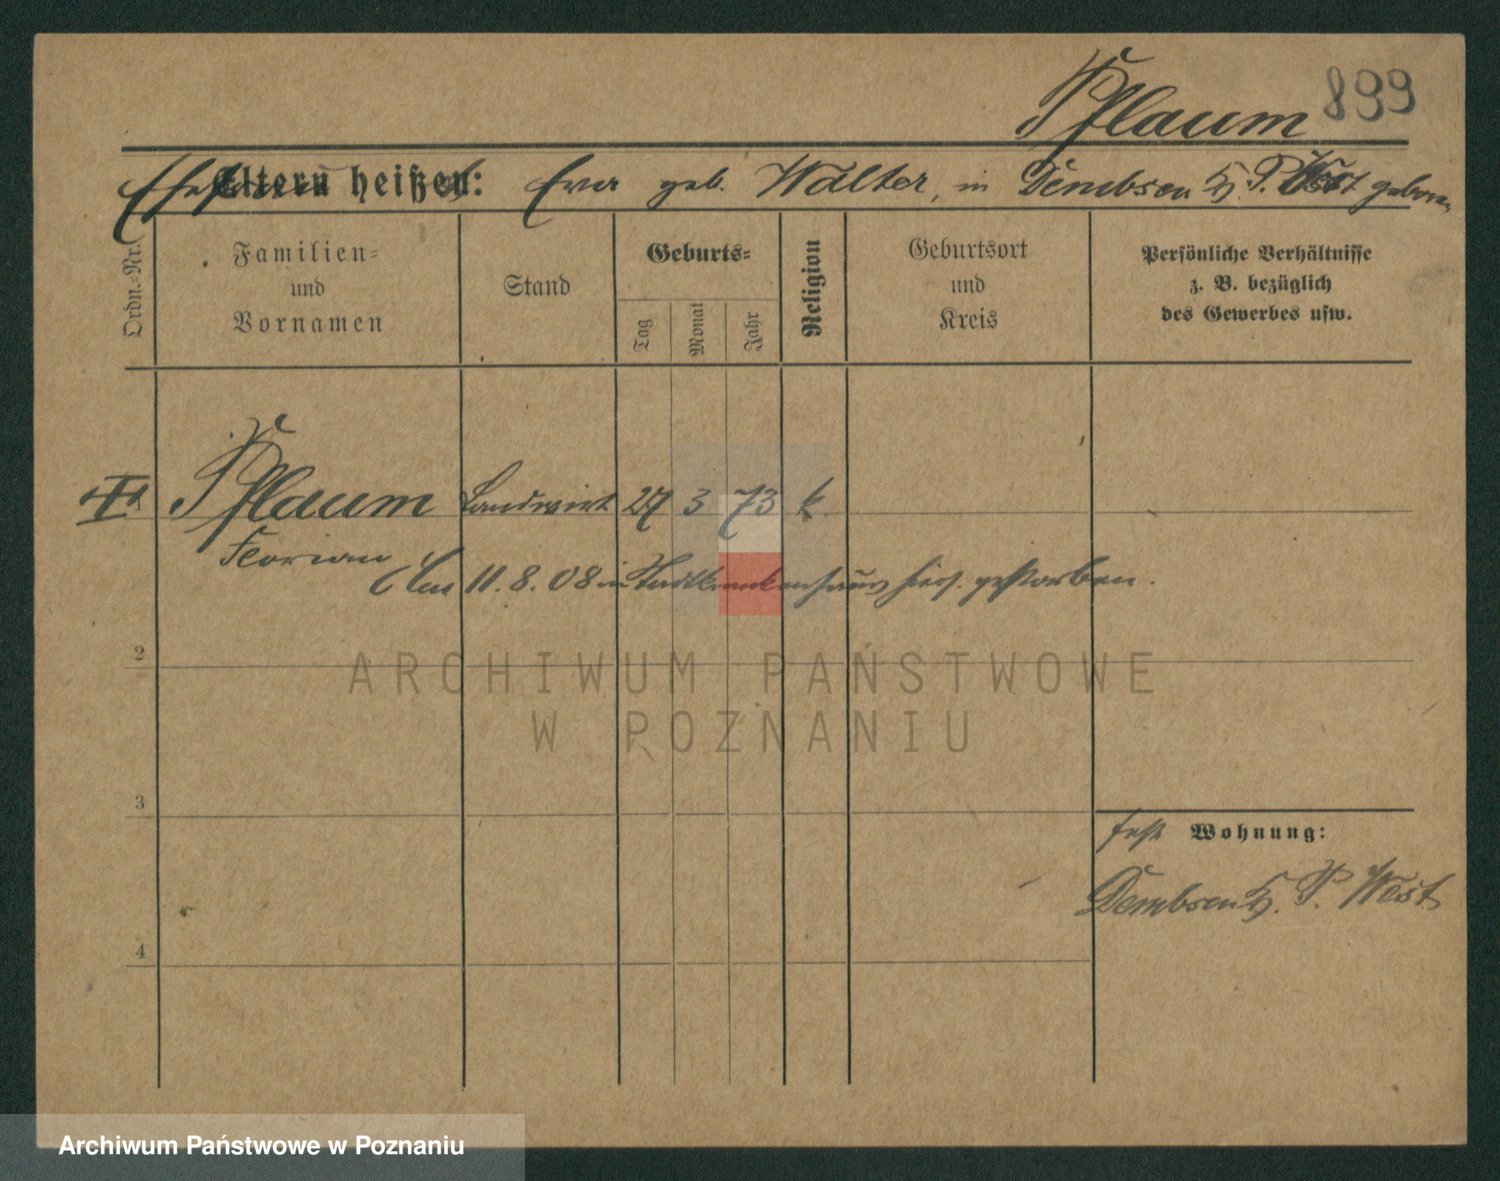 Pflaum 899
Ehefrau Eltern heißen: Eva geb. Walter, in Dembsen Kr. P. West geboren
Ordn.-Nr.
Familien-
und
Vornamen
Stand
Geburts-
Tag
Monat
Jahr
Religion
Geburtsort
und
Kreis
Persönliche Verhältnisse
z. B. bezüglich
des Gewerbes usw.
Pflaum Landwirt 27 3 73 k.
Florian
Am 11.8.08 in Stadtkrankenhaus hies. gestorben.
2
3
4
Wohnung:
Dembsen Kr. P. West
ARCHIWUM PAŃSTWOWE
W POZNANIU
Archiwum Państwowe w Poznaniu